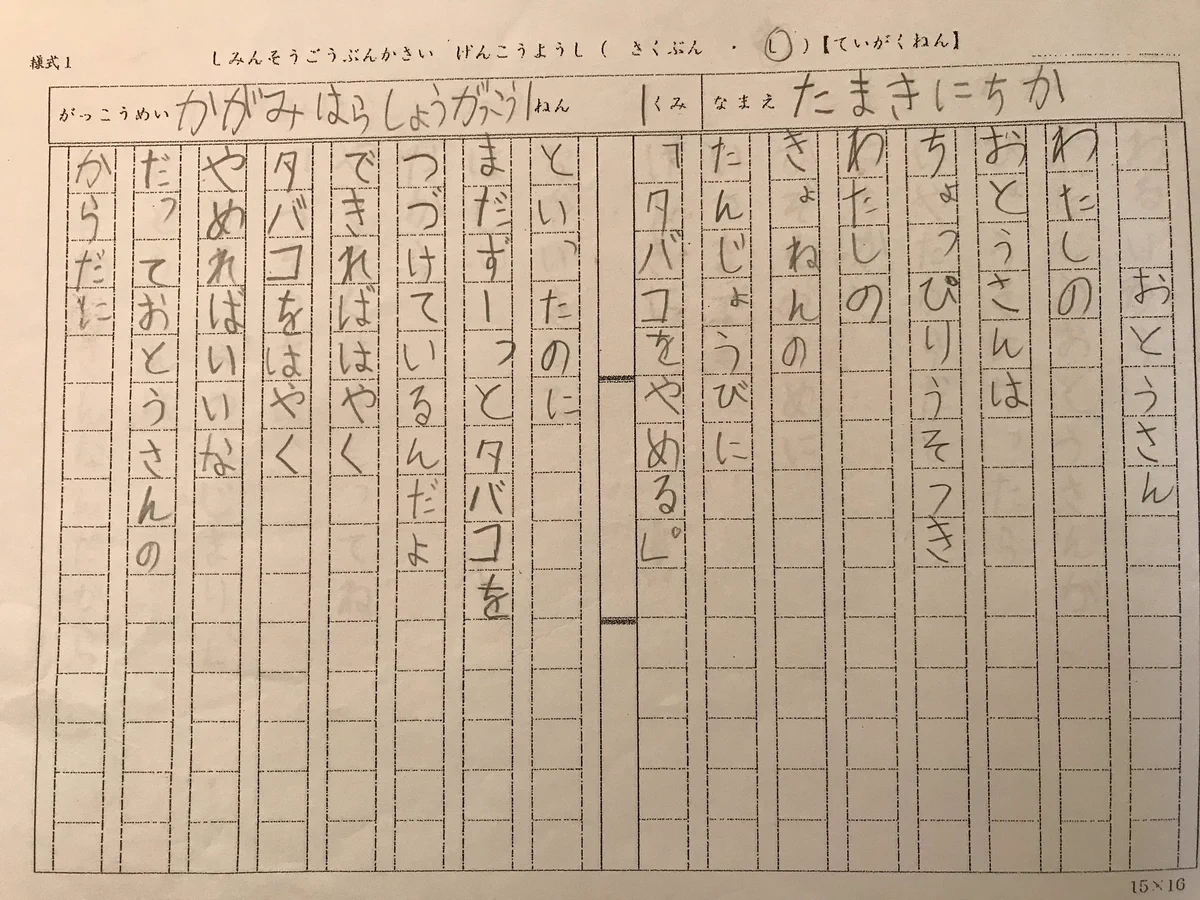 様式1
しみんそうごうぶんかさい げんこうようし ( さくぶん ・ し )【ていがくねん】
がっこうめい かがみはらしょうがっこう 1 ねん 1 くみ なまえ たまきにちか
おとうさん
わたしの
おとうさんは
ちょっぴりうそつき
わたしの
きょねんの
たんじょうびに
「タバコをやめる」。
といったのに
まだずーっとタバコを
つづけているんだよ
できればはやく
タバコをはやく
やめればいいな
だっておとうさんの
からだに
15×16